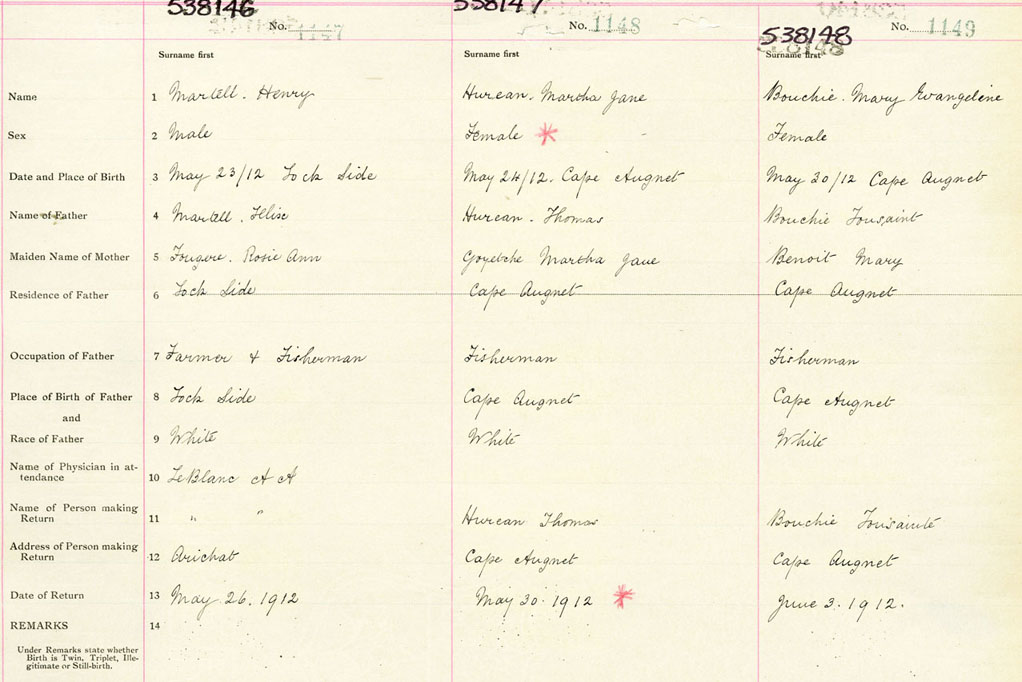 538146 538147
No. 1147 No. 1148 No. 1149
538148
Surname first Surname first Surname first
Name 1 Martell. Henry Hurean. Martha Jane Bouchie. Mary Evangeline
Sex 2 Male Female * Female
Date and Place of Birth 3 May 23/12 Lock Side May 24/12. Cape Augnet May 30/12 Cape Augnet
Name of Father 4 Martell. Hurean. Thomas Bouchie Tousaint
Maiden Name of Mother 5 Fougere. Rosie Ann Goyetche Martha Jane Benoit Mary
Residence of Father 6 Lock Side Cape Augnet Cape Augnet
Occupation of Father 7 Farmer & Fisherman Fisherman Fisherman
Place of Birth of Father 8 Lock Side Cape Augnet Cape Augnet
and
Race of Father 9 White White White
Name of Physician in at-
tendance 10 LeBlanc A A
Name of Person making
Return 11 " " Hurean Thomas Bouchie Tousainte
Address of Person making
Return 12 Arichat Cape Augnet Cape Augnet
Date of Return 13 May 26. 1912 May 30. 1912 * June 3. 1912.
REMARKS 14
Under Remarks state whether
Birth is Twin, Triplet, Ille-
gitimate or Still-birth.